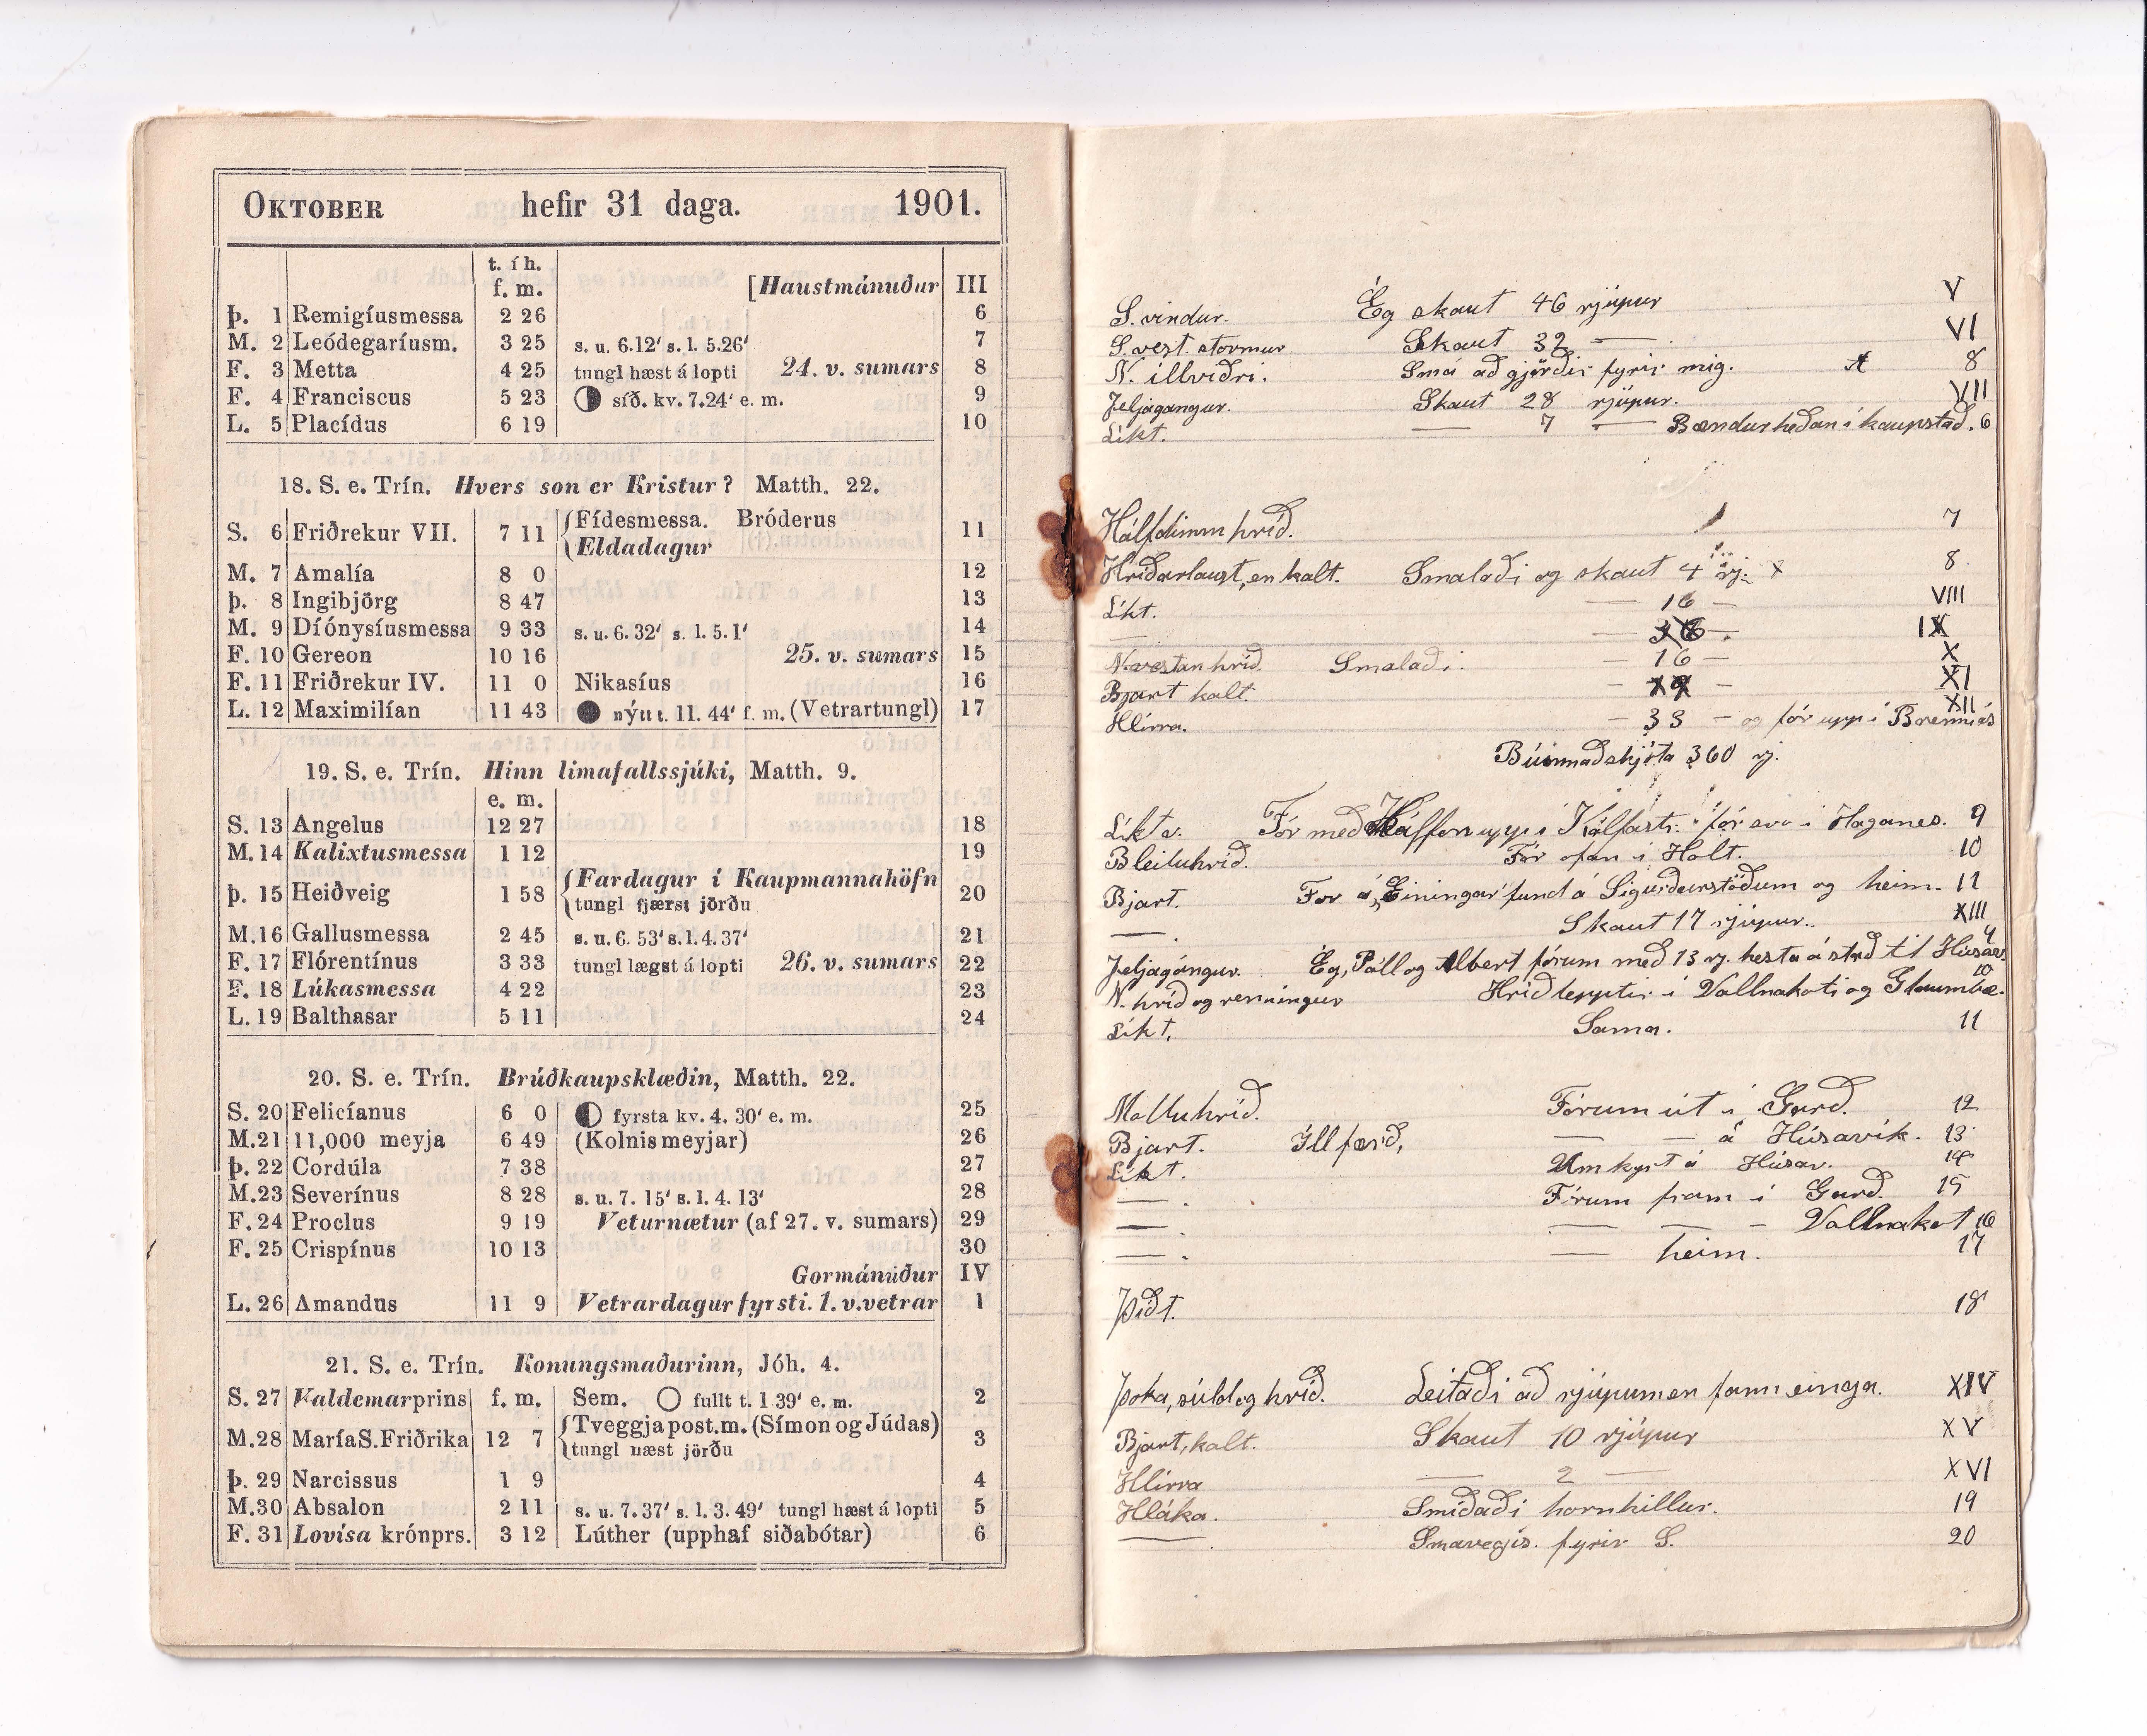 OKTOBER hefir 31 daga. 1901.
t. í h.
f. m. [Haustmánuður III
Þ. 1 Remigíusmessa 2 26 6
M. 2 Leódegaríusm. 3 25 s. u. 6.12' s. l. 5.26' 7
F. 3 Metta 4 25 tungl hæst á lopti 24. v. sumars 8
F. 4 Franciscus 5 23 síð. kv. 7.24' e. m. 9
L. 5 Placídus 6 19 10
18. S. e. Trín. Hvers son er Kristur? Matth. 22.
S. 6 Friðrekur VII. 7 11 Fídesmessa. Bróderus 11
Eldadagur
M. 7 Amalía 8 0 12
Þ. 8 Ingibjörg 8 47 13
M. 9 Díónysíusmessa 9 33 s. u. 6. 32' s. l. 5. 1' 14
F. 10 Gereon 10 16 25. v. sumars 15
F. 11 Friðrekur IV. 11 0 Nikasíus 16
L. 12 Maximilían 11 43 nýtt t. 11. 44' f. m. (Vetrartungl) 17
19. S. e. Trín. Hinn limafallssjúki, Matth. 9.
e. m.
S. 13 Angelus 12 27 18
M. 14 Kalixtusmessa 1 12 19
Þ. 15 Heiðveig 1 58 Fardagur í Kaupmannahöfn 20
tungl fjærst jörðu
M. 16 Gallusmessa 2 45 s. u. 6. 53' s. l. 4. 37' 21
F. 17 Flórentínus 3 33 tungl lægst á lopti 26. v. sumars 22
F. 18 Lúkasmessa 4 22 23
L. 19 Balthasar 5 11 24
20. S. e. Trín. Brúðkaupsklæðin, Matth. 22.
S. 20 Felicíanus 6 0 fyrsta kv. 4. 30' e. m. 25
M. 21 11,000 meyja 6 49 (Kolnismeyjar) 26
Þ. 22 Cordúla 7 38 27
M. 23 Severínus 8 28 s. u. 7. 15' s. l. 4. 13' 28
F. 24 Proclus 9 19 Veturnætur (af 27. v. sumars) 29
F. 25 Crispínus 10 13 30
Gormánuður IV
L. 26 Amandus 11 9 Vetrardagur fyrsti. 1. v. vetrar 1
21. S. e. Trín. Konungsmaðurinn, Jóh. 4.
S. 27 Valdemar prins f. m. Sem. fullt t. 1 39' e. m. 2
M. 28 María S. Friðrika 12 7 Tveggja post. m. (Símon og Júdas) 3
tungl næst jörðu
Þ. 29 Narcissus 1 9 4
M. 30 Absalon 2 11 s. u. 7. 37' s. l. 3. 49' tungl hæst á lopti 5
F. 31 Lovísa krónprs. 3 12 Lúther (upphaf siðabótar) 6
S. vindur. Ég skaut 46 rjúpur V
S. vest. stormur Skaut 32 — . VI
N. illviðri. Smá að gjörðir fyrir mig. 8
Jeljagangur. Skaut 28 rjúpur. VII
Líkt. — 7 — Bændur héðan í kaupstað. 6
Hálfdimm hríð. 7
Hríðarlaust, en kalt. Smalaði og skaut 4 rj. x 8
Líkt. — 16 — VIII
— — IX
N. vestan hríð. Smalaði. — 16 — X
Bjart kalt. — — XI
Hlírra. — 33 — og fór upp í Brenniás XII
Búinn að skjóta 360 rj.
Líkta. Fór með upp í Kálfastr. fór svo í Haganes. 9
Bleiluhríð. Fór ofan í Holt. 10
Bjart. For á „Einingar" fund á Sigurðarstöðum og heim. 11
— . Skaut 17 rjúpur. XIII
Jeljagángur. Ég, Páll og Albert fórum með 13 rj. hesta á stað til Húsav. 9
N. hríð og renningur Hríðtepptir í Vallnakoti og Glaumbæ. 10
Líkt. Sama. 11
Molluhríð. Fórum út í Garð. 12
Bjart. Íllfærð, — — á Húsavík. 13
Líkt. Um kyrt á Húsav. 14
— . Fórum fram í Garð. 15
— . — — — Vallnakot 16
— . — heim. 17
Þiðt. 18
Þoka, súld og hríð. Leitaði að rjúpum en fann einga. XIV
Bjart, kalt. Skaut 10 rjúpur XV
Hlírra — 2 — XVI
Hláka. Smíðaði hornhillur. 19
— . Smavegis fyrir S. 20